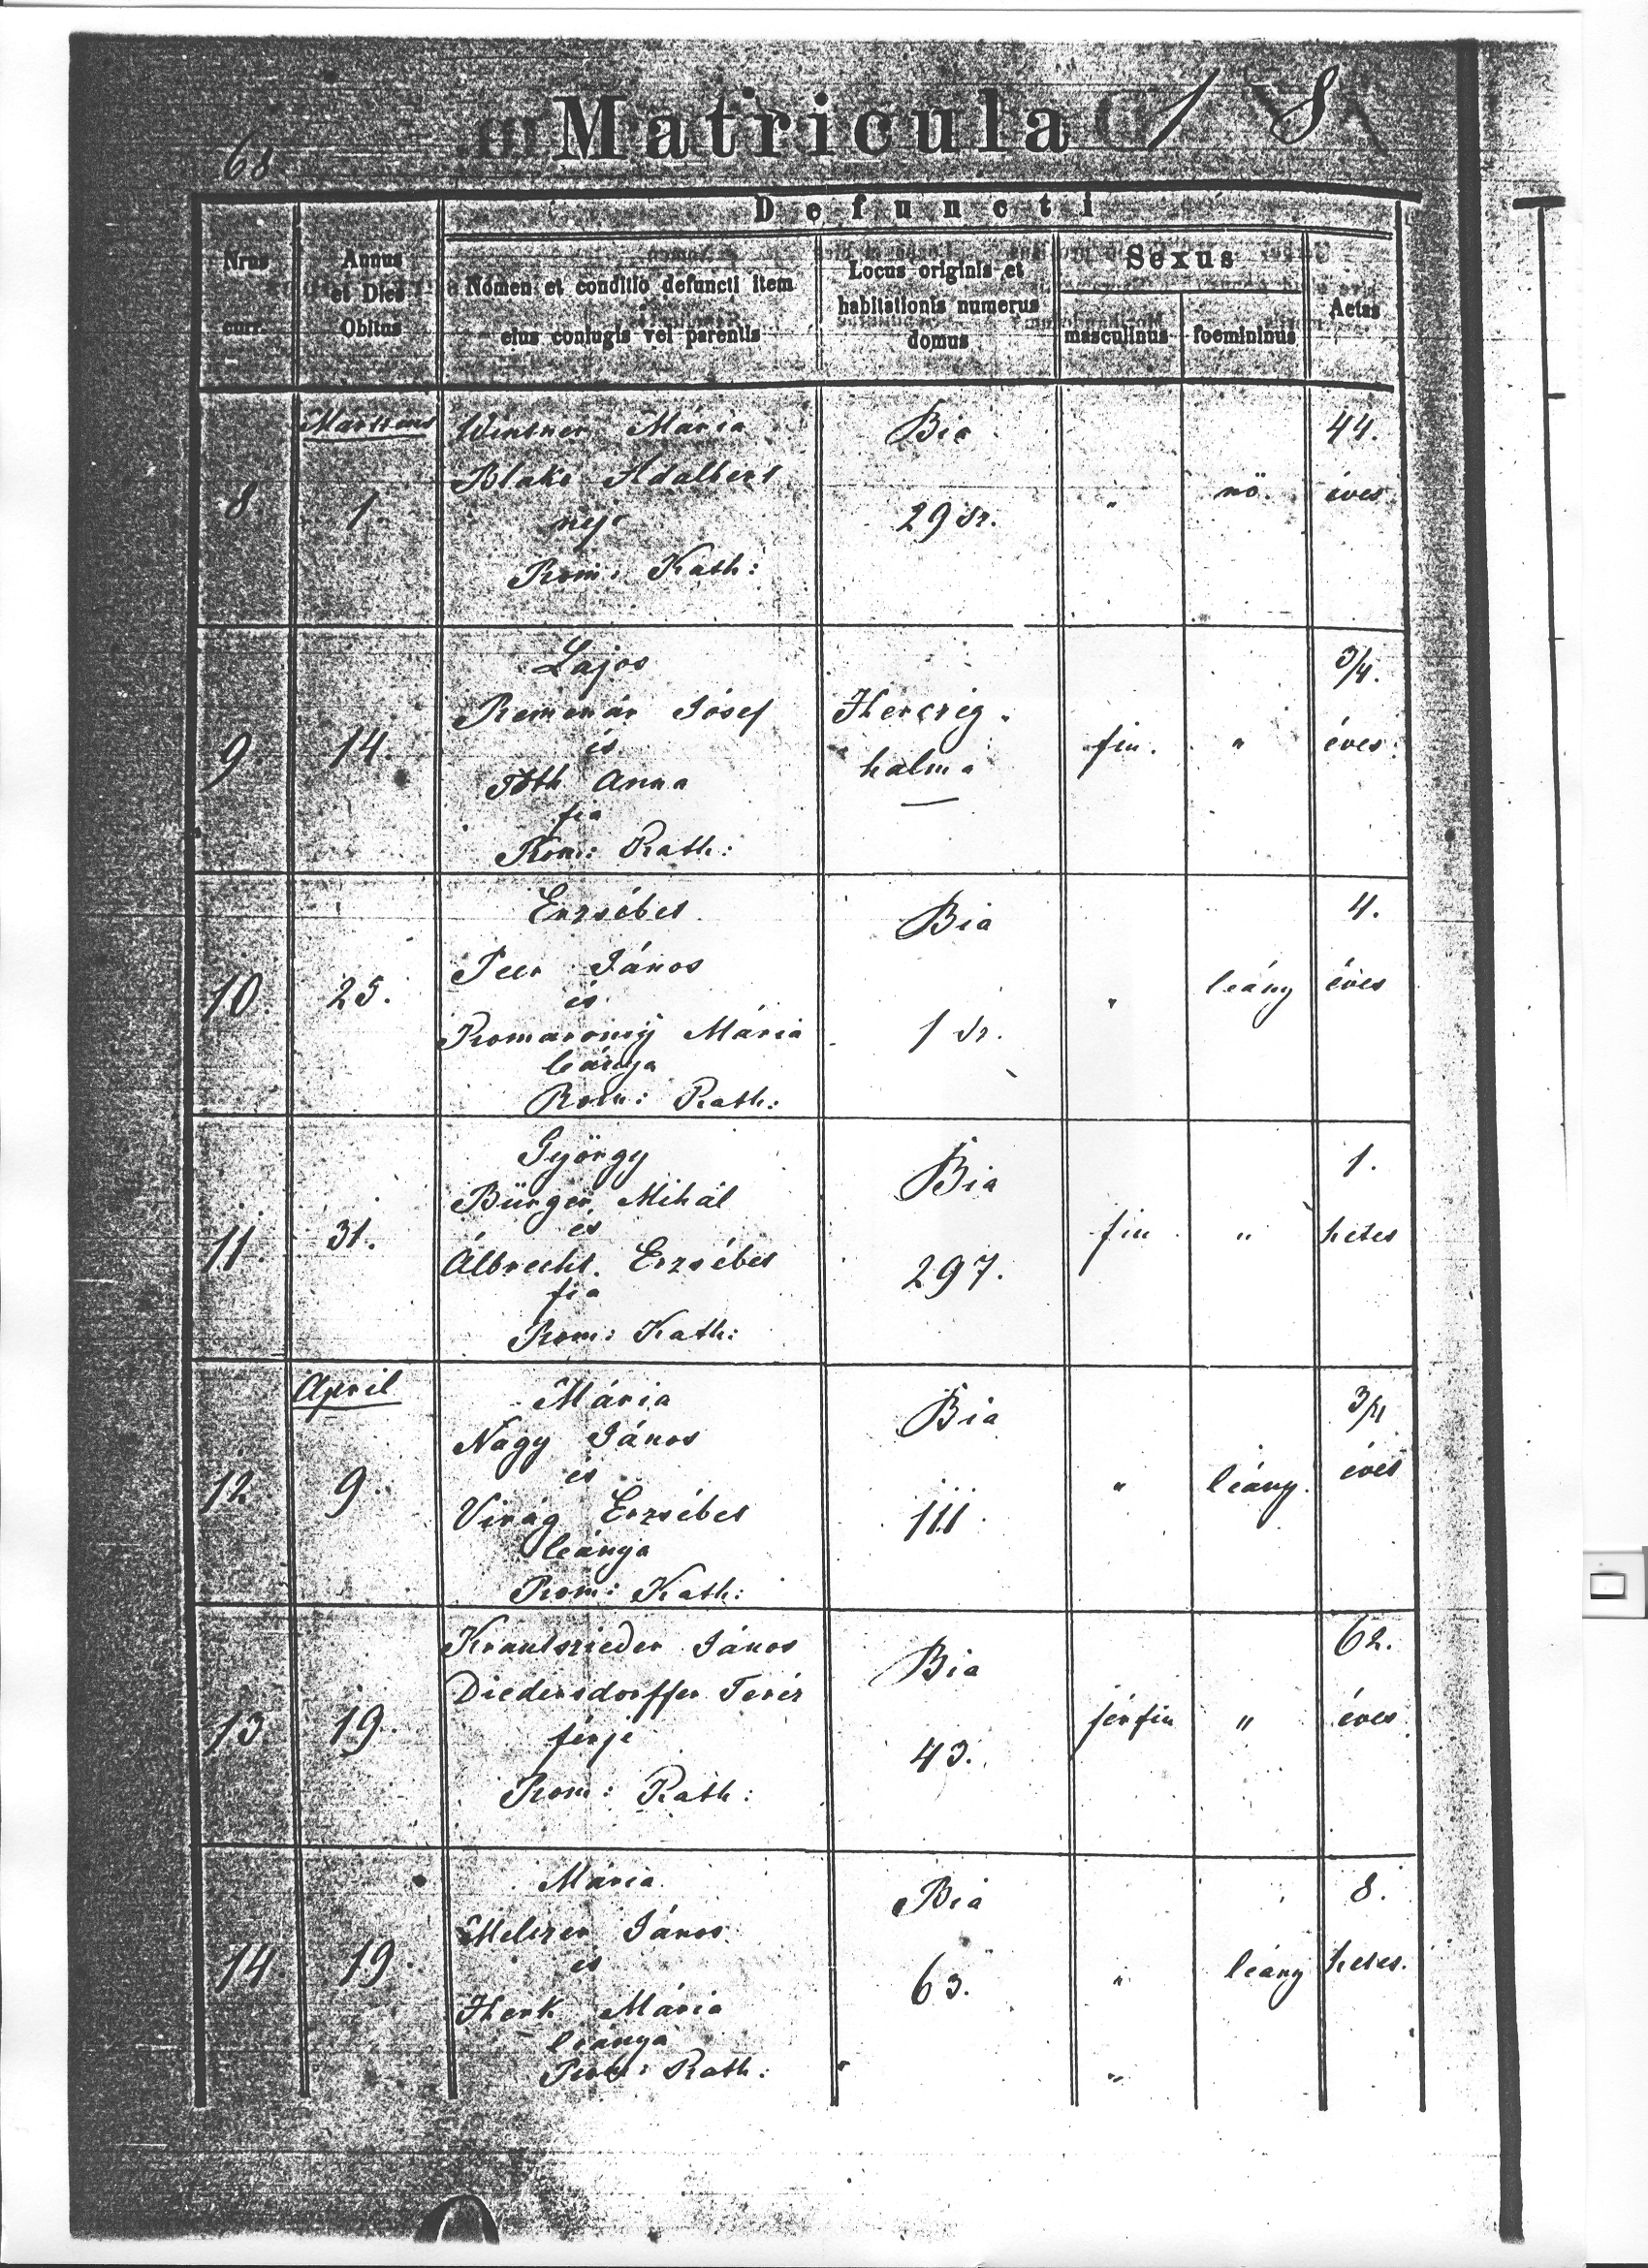 68
Matricula 18
Defuncti
Nrus curr.
Annus et Dies Obitus
Nomen et conditio defuncti item eius coniugis vel parentis
Locus originis et habitationis numerus domus
Sexus
masculinus
foemininus
Aetas
Martius
8. 1.
Wintner Mária
Blaké Adalbert
neje
Rom: Kath:
Bia
29 sz.
„ nö.
44.
éves
9. 14.
Lajos
Remenár Jósef
és
Tóth Anna
fia
Rom: Kath:
Herczeg-
halma
fiu. „
3/4.
éves
10 25.
Erzsébet
Peer János
és
Komaromÿ Mária
leánya
Rom: Kath:
Bia
1 sz.
„ leány
4.
éves
11. 31.
György
Bürger Mihál
és
Álbrecht Erzsébet
fia
Rom: Kath:
Bia
297.
fiu „
1.
hetes
April
12 9.
Mária
Nagy János
és
Virág Erzsébet
leánya
Rom: Kath:
Bia
111
„ leány.
3/4
éves
13 19.
János
Diedersdorffer Teréz
férje
Rom: Kath:
Bia
43.
férfiu „
62.
éves
14 19.
Mária
Melczer János
és
Herk Mária
leánya
Rom: Kath:
Bia
63.
„ leány
8.
hetes.
„